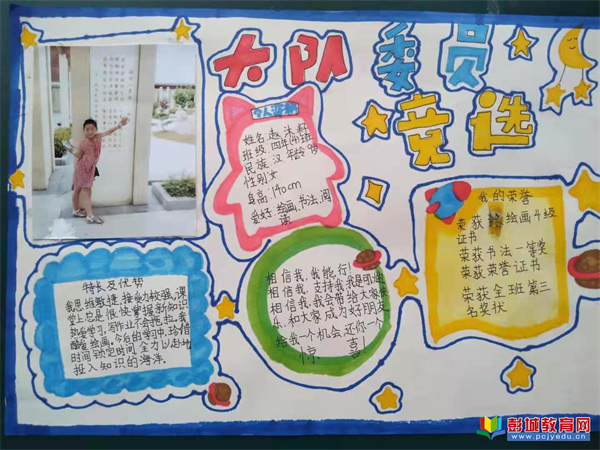 大队委员
竞选
个人资料
姓名赵沐籽
班级:四年(4)班
民族 汉 年龄9岁
性别女
身高:140cm
爱好:绘画,书法,阅
读
我的荣誉
荣获绘画4级
证书
荣获书法一等奖
荣获荣誉证书
荣获全班第三
名奖状
特长及优势
我思维敏捷,接受力较强,课
学上总是很快掌握新知识
热爱学习,写作业不会拖拖,我
酷爱绘画,今后的学习中,珍惜
时间锁定时间,全力以赴地
投入知识的海洋。
相信我,我能行!
相信我,支持我,我是可以的
相信我,我会带给大家快
乐,和大家成为好朋友
给我一个机会,还你一个
惊喜!
彭城教育网
www.pcjyedu.cn